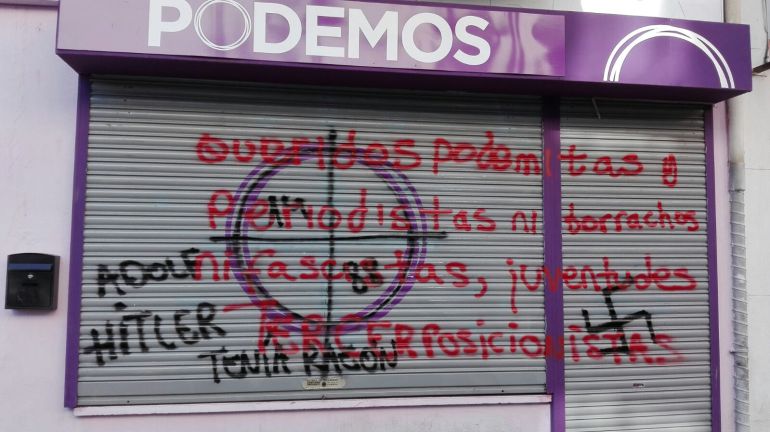 PODEMOS
QUERIDOS podemitas y
Periodistas ni borrachos
ni fascistas, juventudes
TERCERPOSICIONISTAS
14
88
ADOLF
HITLER
TENIA RAZON